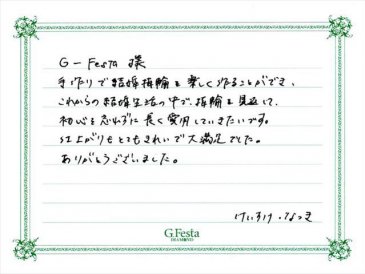 G-Festa 様
手作りで結婚指輪を楽しく作ることができ、
これからの結婚生活の中で、指輪を見返して、
初心を忘れずに長く愛用していきたいです。
仕上がりもとてもきれいで大満足でした。
ありがとうございました。
けいすけ・なつき
G.Festa
DIAMOND